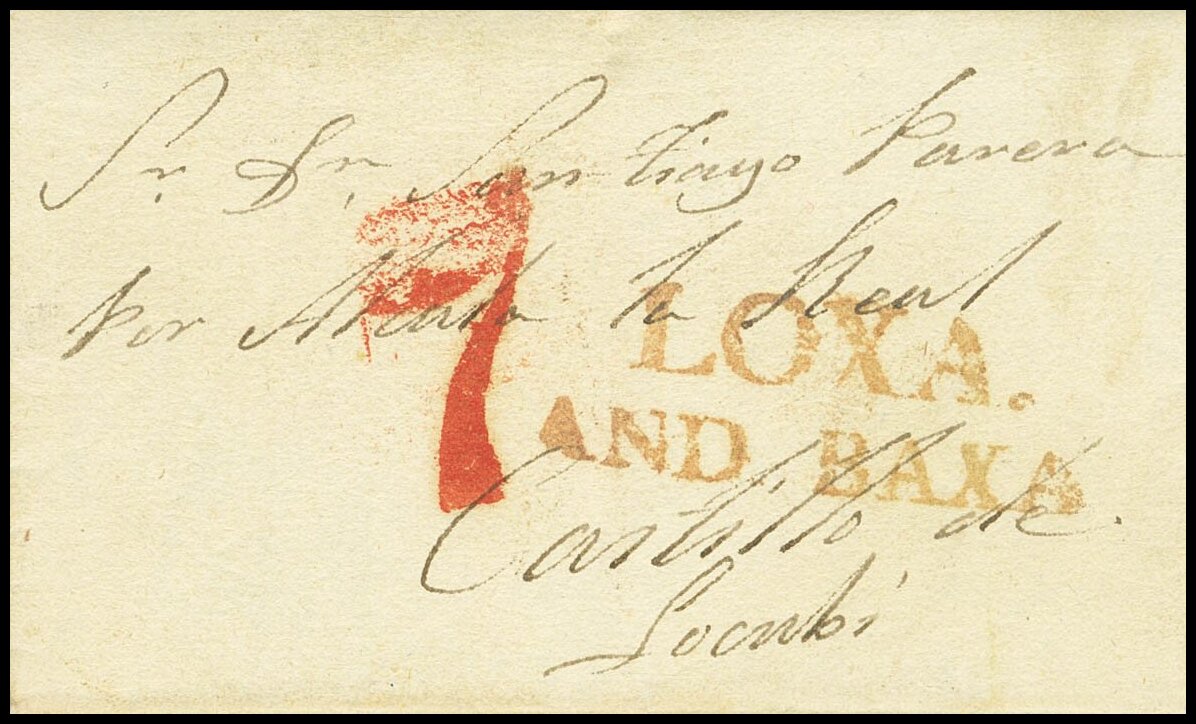 Sr. Dn. San tiago Parera
por Alcala la Real
7
LOXA.
AND BAXA
Castillo de
Locubi